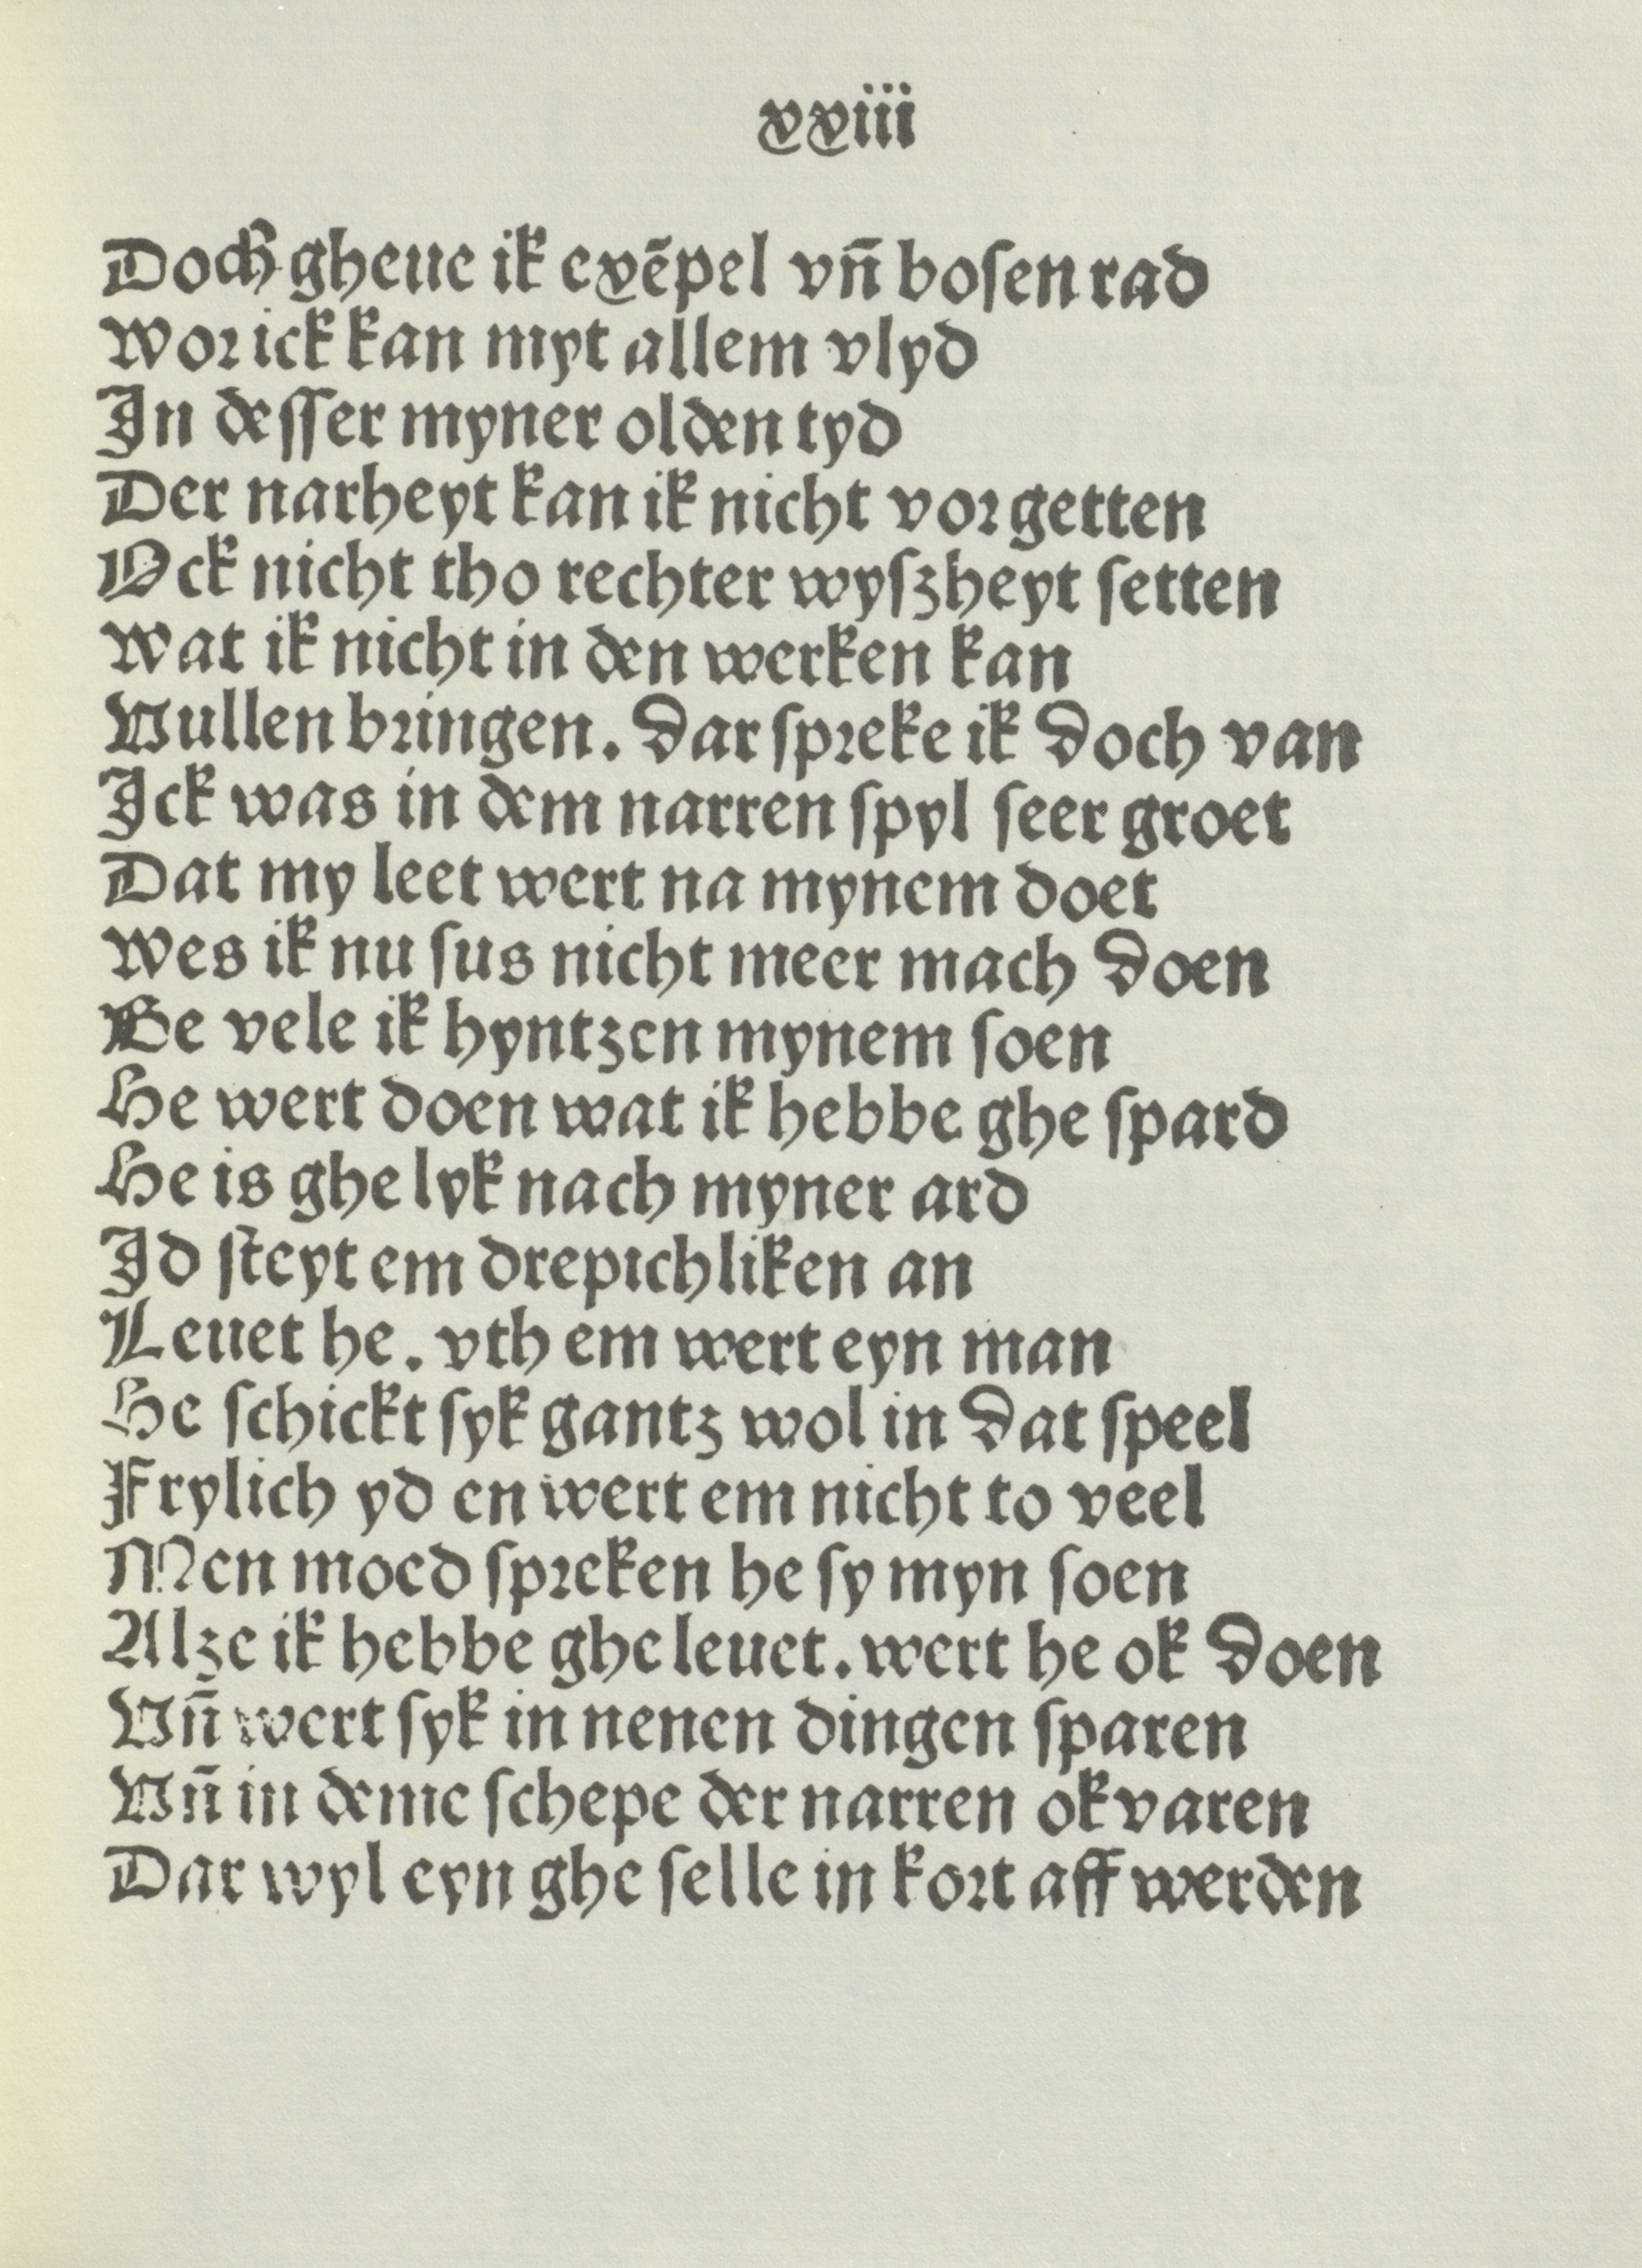 xxiii
Doch gheue ik exẽpel vñ bosen rad
Wor ick kan myt allem vlyd
In desser myner olden tyd
Der narheyt kan ik nicht vorgetten
Ock nicht tho rechter wyszheyt setten
Wat ik nicht in den werken kan
Vullen bringen. dar spreke ik doch van
Ick was in dem narren spyl seer groet
Dat my leet wert na mynem doet
Wes ik nu sus nicht meer mach doen
Be vele ik hyntzen mynem soen
He wert doen wat ik hebbe ghe spard
He is ghe lyk nach myner ard
Id steyt em drepichliken an
Leuet he. vth em wert eyn man
He schickt syk gantz wol in dat speel
Frylich yd en wert em nicht to veel
Men moed spreken he sy myn soen
Alze ik hebbe ghe leuet. wert he ok doen
Vñ wert syk in nenen dingen sparen
Vñ in deme schepe der narren ok varen
Dar wyl eyn ghe selle in kort aff werden